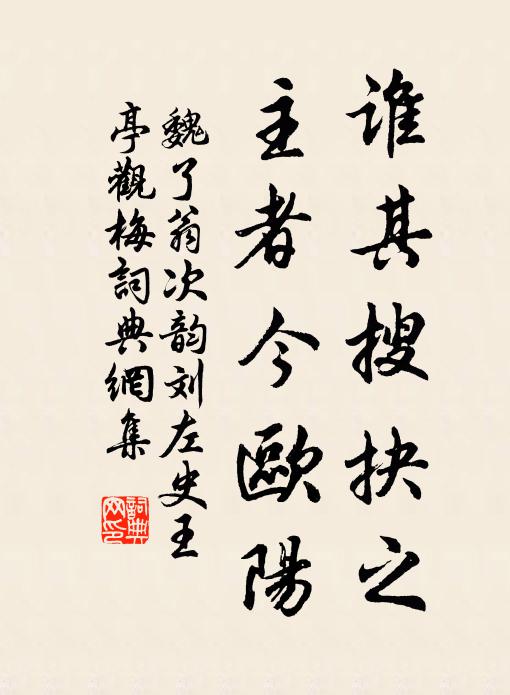 谁其搜抉之
主者今歐陽
魏了翁次韵刘左史王
亭觀梅詞典網集
詞典网印